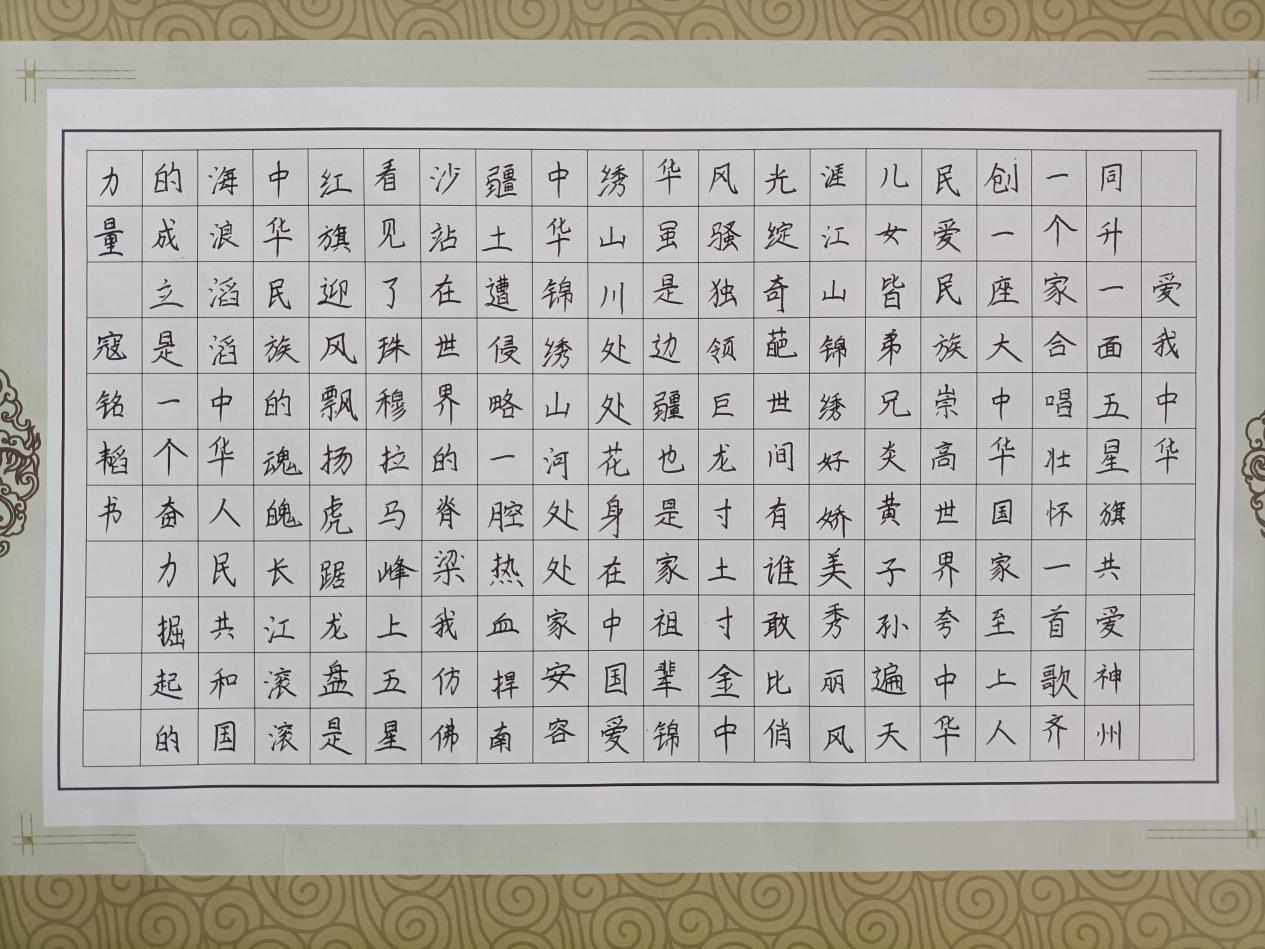 爱我中华
同升一面五星旗共爱神州
一个家合唱壮怀一首歌齐
创一座大中华国家至上人
民爱民族崇高世界夸中华
儿女皆弟兄炎黄子孙遍天
涯江山锦绣好娇美秀丽风
光绽奇葩世间有谁敢比俏
风骚独领巨龙寸土寸金中
华虽是边疆也是家祖辈锦
绣山川处处花身在中国爱
中华锦绣山河处处家安容
疆土遭侵略一腔热血捍南
沙站在世界的脊梁我仿佛
看见了珠穆拉马峰上五星
红旗迎风飘扬虎踞龙盘是
中华民族的魂魄长江滚滚
海浪滔滔中华人民共和国
的成立是一个奋力掘起的
力量 寇铭韬书